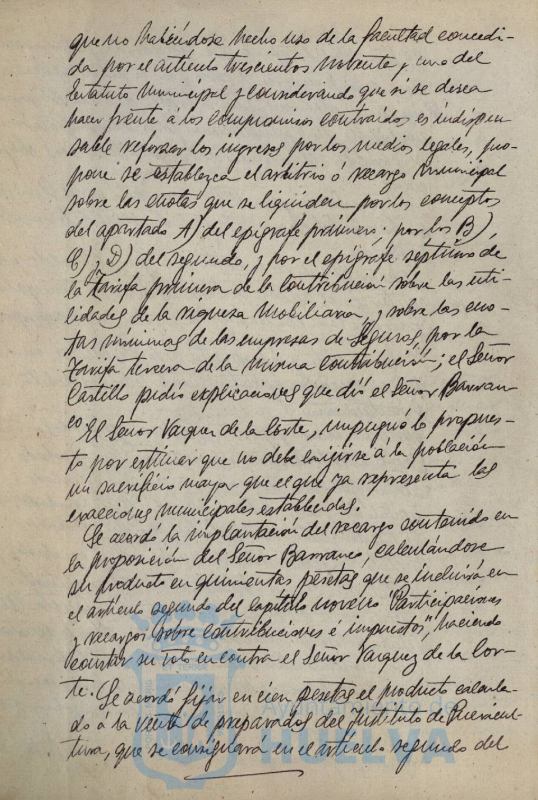 que no habiéndose hecho uso de la facultad concedi-
da por el artículo trescientos noventa y uno del
Estatuto Municipal y considerando que si se desea
hacer frente á los compromisos contraidos es indispen
sable reforzar los ingresos por los medios legales, pro-
pone se establezca el arbitrio ó recargo municipal
sobre las cuotas que se liquiden por los conceptos
del apartado A) del epígrafe primero; por los B),
C) y D) del segundo, y por el epígrafe septimo de
la Tarifa primera de la Contribución sobre las uti-
lidades de la riqueza Mobiliaria, y sobre las cuo-
tas minimas de las empresas de Seguros, por la
Tarifa tercera de la misma contribución; el Señor
Castillo pidió explicaciones que dió el Señor Barran-
co
El Señor Vazquez de la Corte, impugnó lo propues-
to por estimar que no debe exigirse á la población
un sacrificio mayor que el que ya representa las
exacciones municipales establecidas.
Se acordó la implantación del recargo contenido en
la proposición del Señor Barranco, calculándose
su producto en quinientas pesetas que se incluirá en
el artículo segundo del capítulo noveno "Participaciones
y recargos sobre contribuciones é impuestos", haciendo
constar su voto en contra el Señor Vazquez de la Cor-
te. Se acordó fijar en cien pesetas el producto calcula-
do á la venta de preparados del Instituto de Puericul-
tura, que se consignará en el artículo segundo del
Ayuntamiento de
HUELVA